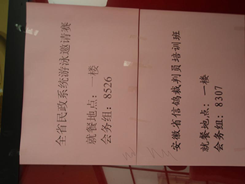 全省民政系统游泳邀请赛
就餐地点：一楼
会务组：8526
安徽省信鸽裁判员培训班
就餐地点：一楼
会务组：8307